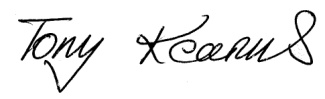 Tony Kearns